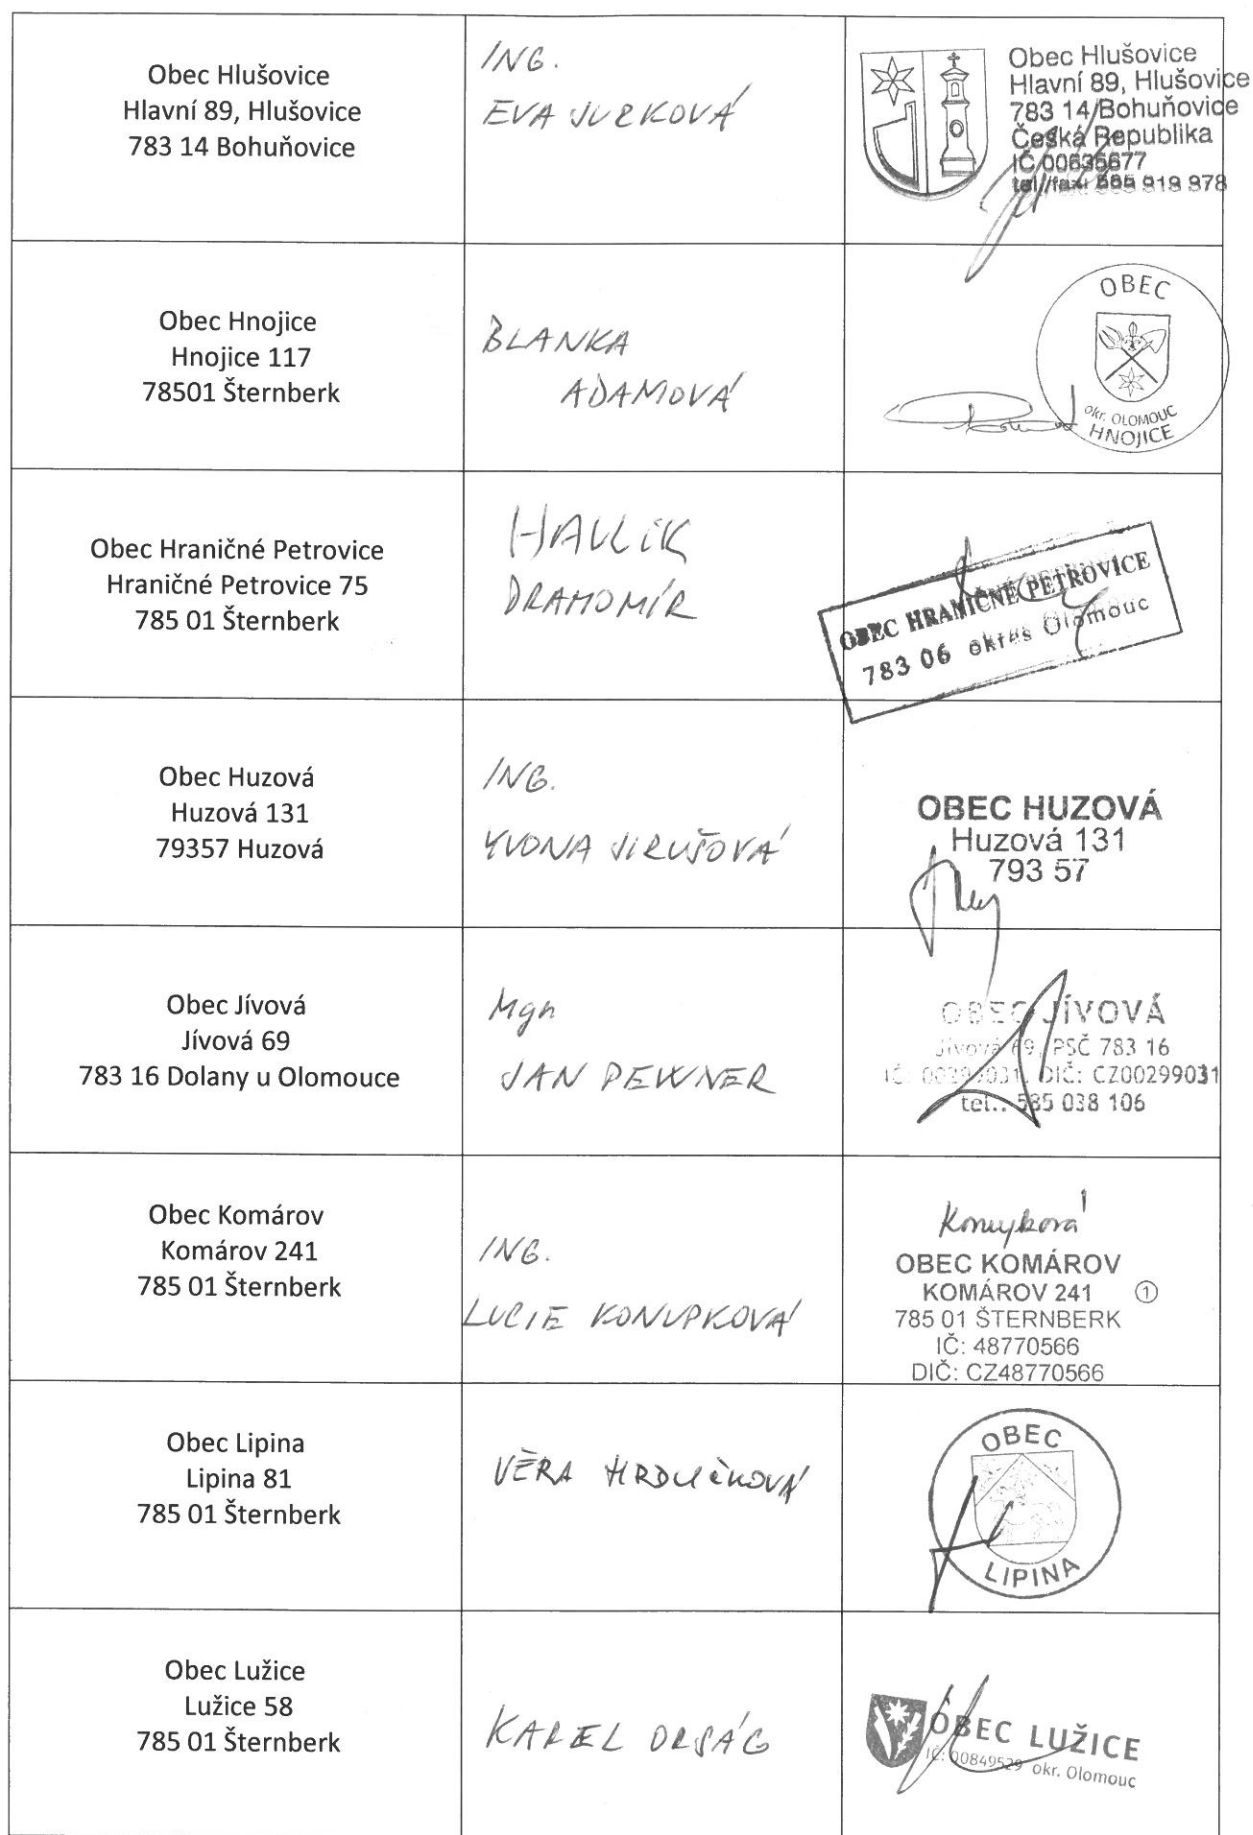 Obec Hlušovice
Hlavní 89, Hlušovice
783 14 Bohuňovice
ING.
EVA JURKOVÁ
Obec Hlušovice
Hlavní 89, Hlušovice
783 14 Bohuňovice
Česká Republika
IČ 00635677
tel./fax: 585 919 978
Obec Hnojice
Hnojice 117
78501 Šternberk
BLANKA
ADAMOVÁ
OBEC
okr. OLOMOUC
HNOJICE
Obec Hraničné Petrovice
Hraničné Petrovice 75
785 01 Šternberk
HAVLÍK
DRAHOMÍR
OBEC HRANIČNÉ PETROVICE
783 06 okres Olomouc
Obec Huzová
Huzová 131
79357 Huzová
ING.
YVONA JIRUŠOVÁ
OBEC HUZOVÁ
Huzová 131
793 57
Obec Jívová
Jívová 69
783 16 Dolany u Olomouce
Mgr
JAN
OBEC JÍVOVÁ
Jívová 69, PSČ 783 16
IČ: 00299031, DIČ: CZ00299031
tel.: 585 038 106
Obec Komárov
Komárov 241
785 01 Šternberk
ING.
LUCIE KONUPKOVÁ
OBEC KOMÁROV
KOMÁROV 241 ①
785 01 ŠTERNBERK
IČ: 48770566
DIČ: CZ48770566
Obec Lipina
Lipina 81
785 01 Šternberk
VĚRA HRDLIČKOVÁ
OBEC
LIPINA
Obec Lužice
Lužice 58
785 01 Šternberk
KAREL ORSÁG
OBEC LUŽICE
IČ: 00849529 okr. Olomouc